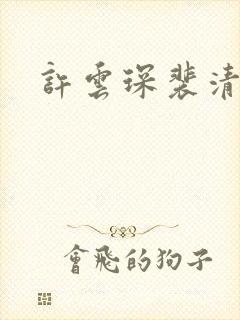 許雲琛裴清
會飛的狗子